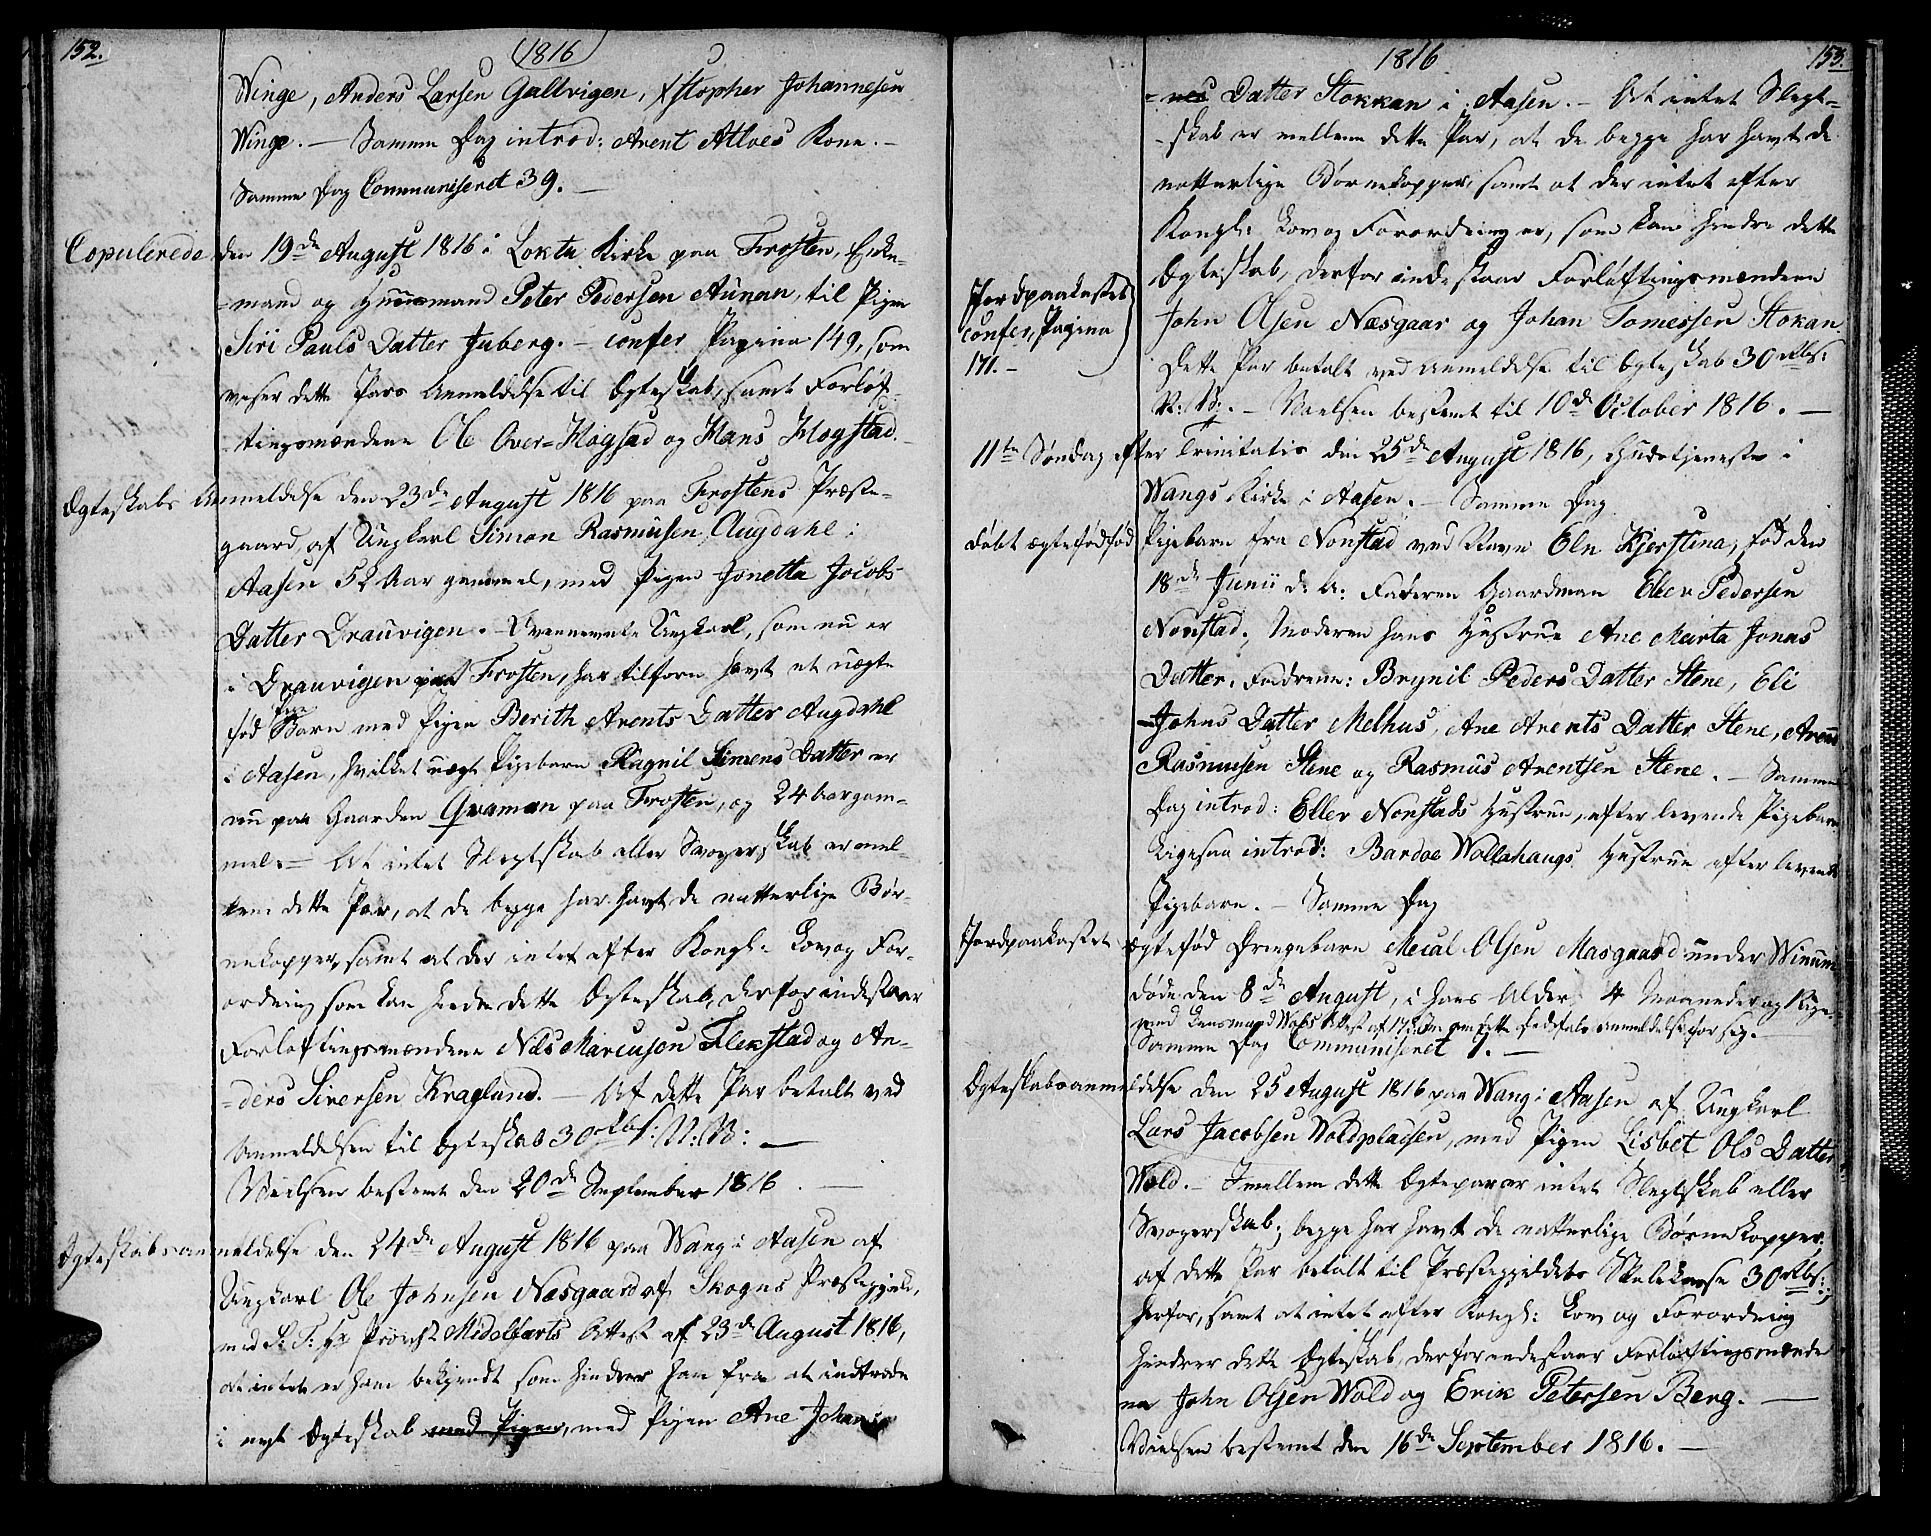 152.
1816
Winge, Anders Larsen Galtvigen, Xstopher Johannesen
Winge. — Samme Dag introd: Arent Atloes Kone. —
Samme Dag Communiseret 39. —
Copulerede den 19de August 1816 i Lokta Kirke paa Frosten, Enke-
-mand og Huusmand Peter Pedersen Aunan, til Pigen
Siri Pauls Datter Juberg. — confer Pagina 149, som
viser dette Pars Anmeldelse til Ægteskab, samt Forløf-
-tingsmændene Ole Over-Hogstad og Hans Hogstad. —
Ægteskabs Anmeldelse den 23de August 1816 paa Frostens Præste-
gaard, af Ungkarl Simon Rasmusen Augdahl i
Aasen 52 Aar gammel, med Pigen Jonetta Jocobs
Datter Drauvigen. — Ovennevnte Ungkarl, som nu er
i Drauvigen paa Frosten, har tilforn havt et uægte
fød Pige Barn med Pigen Berith Arents Datter Augdahl
i Aasen, hvilket uægte Pigebarn Ragnil Simens Datter er
nu paa Gaarden Graman paa Frosten, og 24 Aar gam-
mel. — At intet Slegtskab eller Svogerskab er mel-
lem dette Par, at de begge har havt de naturlige Bør-
nekopper, samt at der intet efter Kongl: Lov og For-
ordning som kan hindre dette Ægteskab, derfor indestaar
Forløftingsmændene Nils Marcuson Flekstad og An-
-ders Siversen Kraglund. — Af dette Par betalt ved
Anmeldelsen til Ægteskab 30 rbs: N: V: —
Vielsen bestemt den 20de September 1816. —
Ægteskabsanmeldelse den 24de August 1816 paa Wang i Aasen af
Ungkarl Ole Johnsen Næsgaard af Skogns Præstegjeld,
med S: T: Hr Provst Midelfarts Attest af 23de August 1816,
at intet er ham bekjendt som hindrer ham fra at indtræde
i nyt Ægteskab med Pigen, med Pigen Ane Johan-
1816
153.
-nes Datter Stokkan i Aasen. — At intet Slegt-
-skab er mellem dette Par, at de begge har havt de
naturlige Børnekopper, samt at der intet efter
Kongl: Lov og Forordning er, som kan hindre dette
Ægteskab, derfor indestaar Forløftingsmændene
Jordpaakastet
confer, Pagina
171. —
John Olsen Næsgaar og Johan Tomessen Stokan.
Dette Par betalt ved Anmeldelse til Ægteskab 30 rbs:
N: V: — Vielsen bestemt til 10de October 1816. —
11te Søndag efter Trinitatis den 25de August 1816, Gudstjeneste i
Wangs Kirke i Aasen. — Samme Dag
døbt ægtefød fød Pigebarn fra Nonstad ved Navn Eln Kjerstina, fød den
18de Junii d: A: Faderen Gaardman Eller Pedersen
Nonstad, Moderen hans Hustrue Ane Marta Jonas
Datter. Fadrene: Brynil Peders Datter Stene, Eli
Johns Datter Melhus, Ane Arents Datter Stene, Arent
Rasmusen Stene og Rasmus Arentsen Stene. — Samme
Dag introd: Eller Nonstads Hustrue, efter levende Pigebarn
Ligesaa introd: Bardoe Wollahaugs Hustrue efter levende
Pigebarn. — Samme Dag
Jordpaakastet ægtefød Drengebarn Mecal Olsen Masgaard under Winum
døde den 8de August, i hans Alder 4 Maaneder og
Samme Dag Communiseret 1. —
Ægteskabsanmeldelse den 25 August 1816 paa Wang i Aasen af Ungkarl
Lars Jacobsen Woldpladsen, med Pigen Lisbet Ols Datter
Wold. — Imellem dette Ægtepar er intet Slegtskab eller
Svogerskab; begge har havt de naturlige Børnekopper,
af dette Par betalt til Præstegjeldets Skolekasse 30 rbs:;
derfor, samt at intet efter Kongl: Lov og Forordning
hindrer dette Ægteskab, derfor indestaar Forløftingsmænde
ne John Olsen Wold og Erik Petersen Berg. —
Vielsen bestemt den 16de September 1816. —